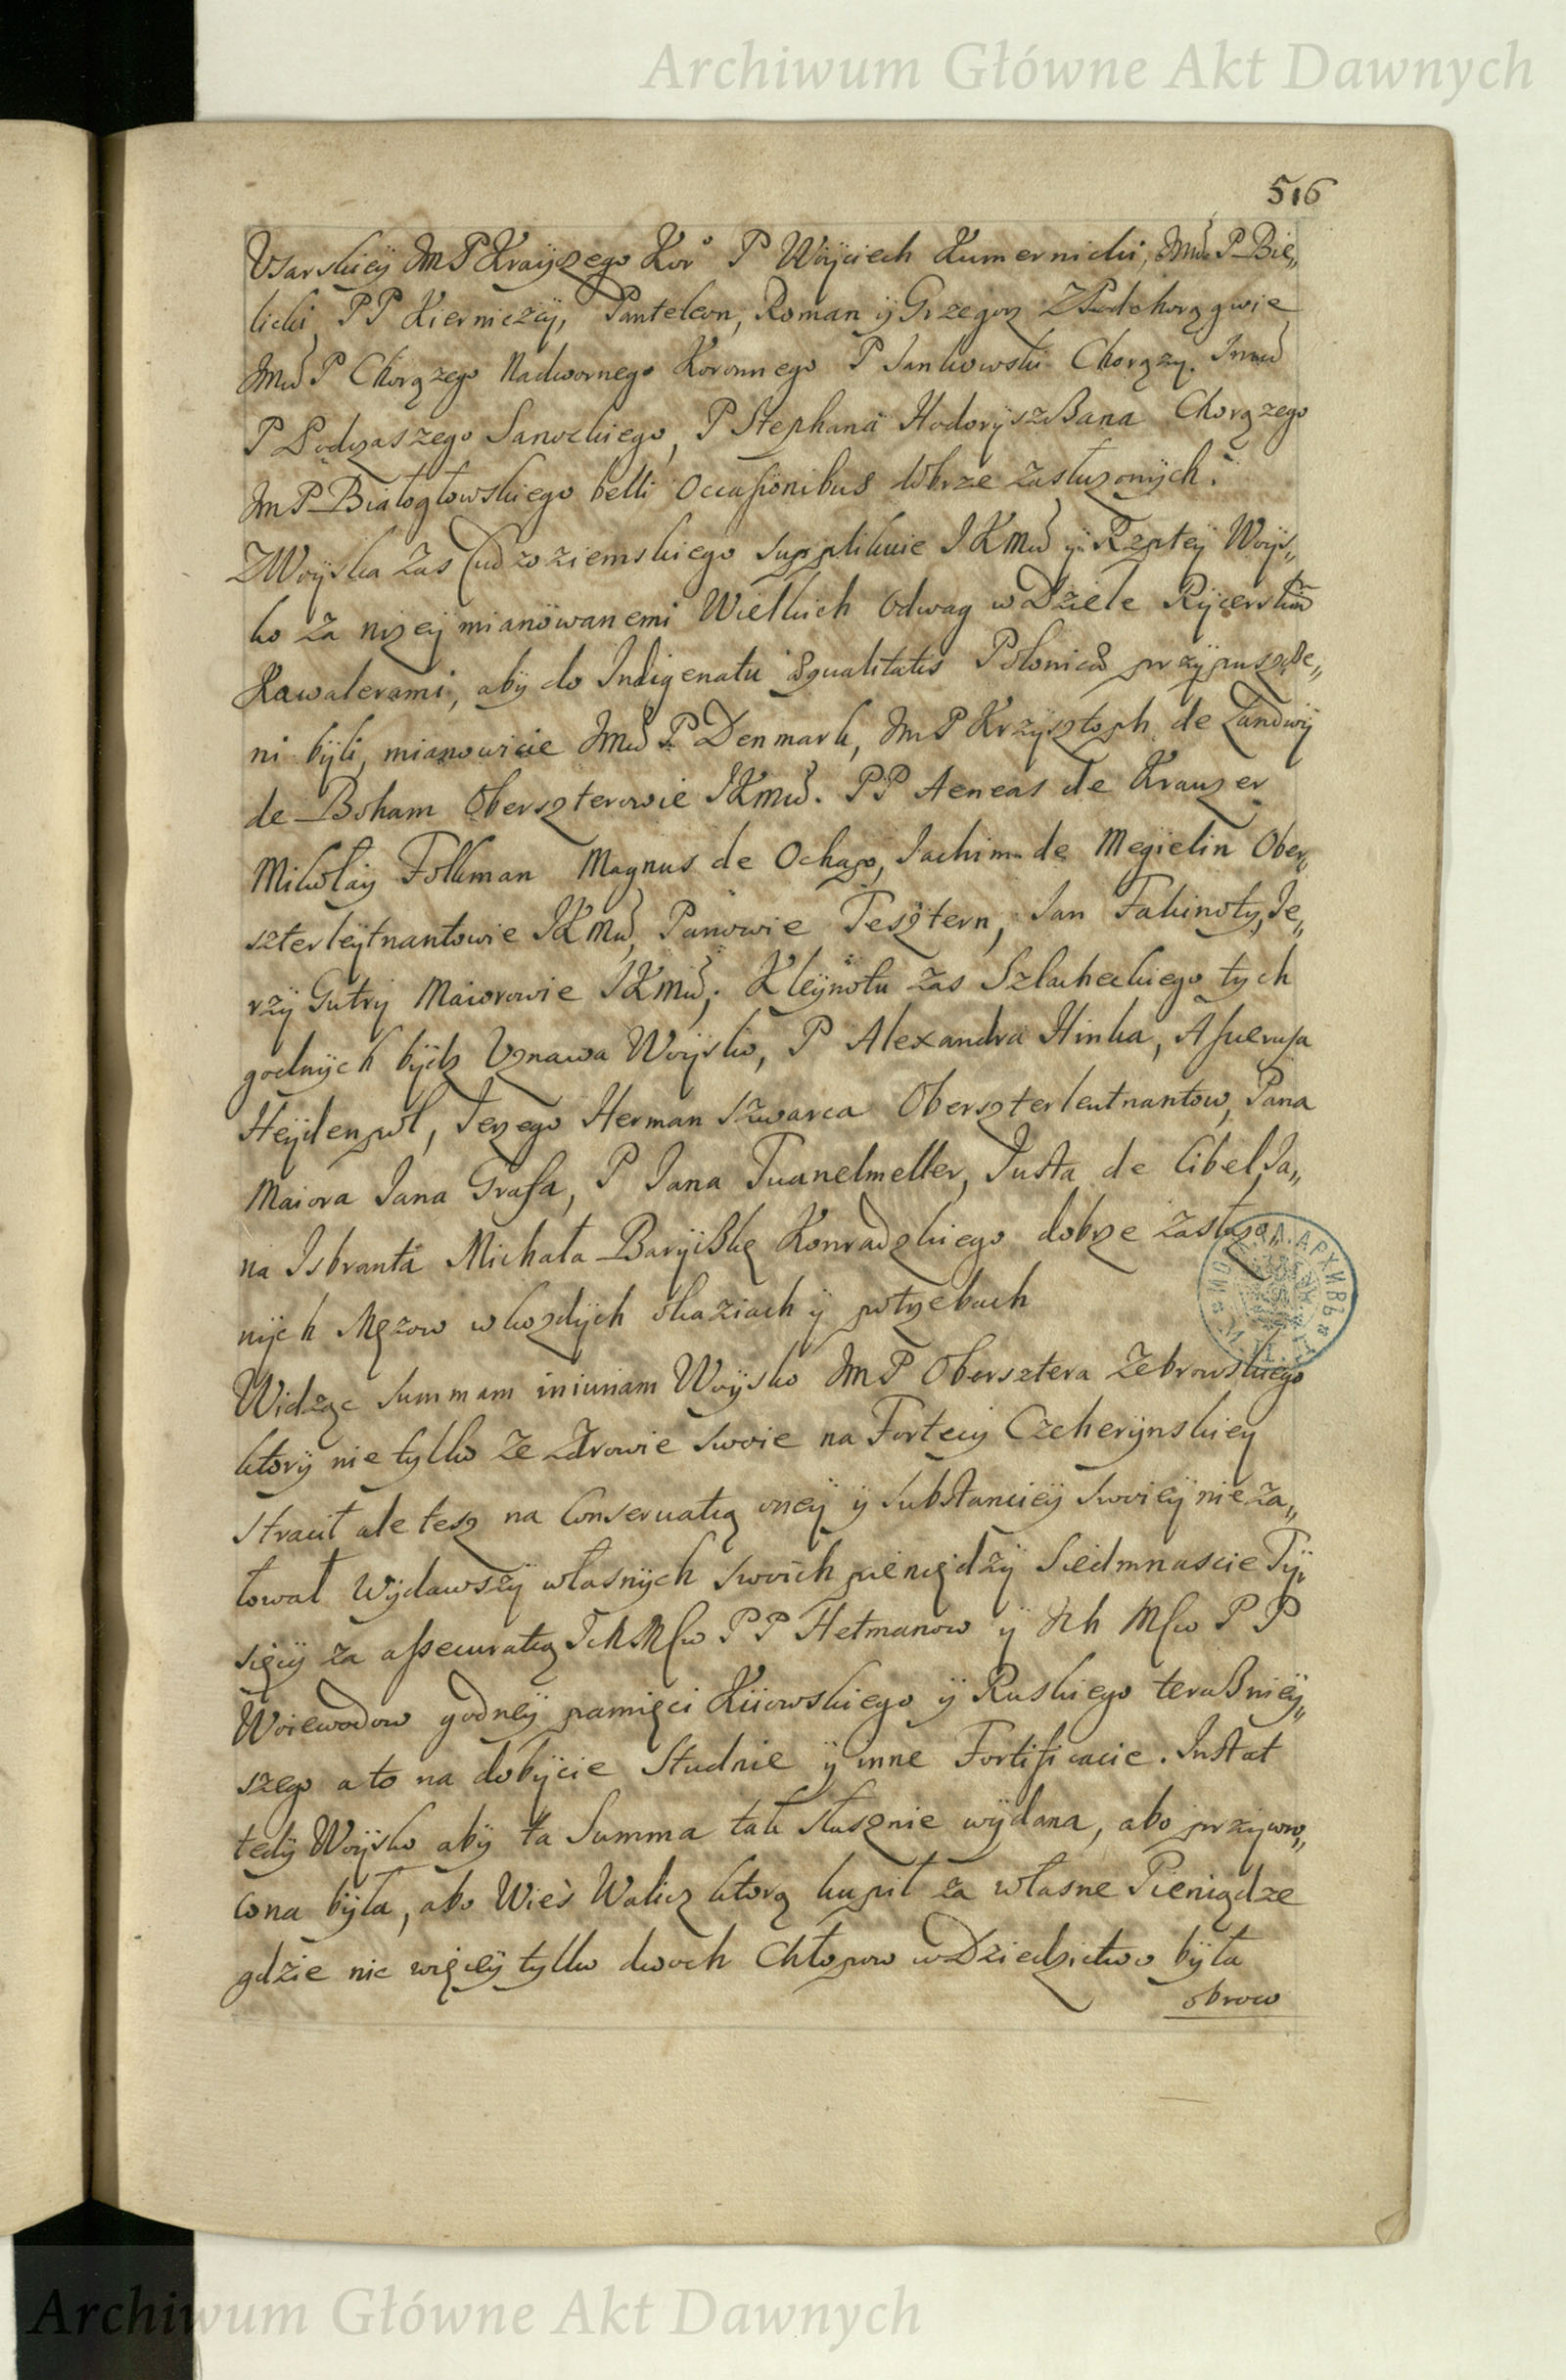 Archiwum Główne Akt Dawnych
516
Vsarskiey JmP Krayczego Kor° P Woyciech Kumernicki, Jmć P Bie„
licki, PP Kierniczÿ, Panteleon, Roman ÿ Grzegorz Z Podchorągwie
Jmć P Chorązego Nadwornego Koronnego P Jankowski Chorązy. Jmć
P Podczaszego Sanockiego, P Stephana Hodorÿszßana Chorązego
JmP Białogłowskiego belli Occasionibus dobrze zasłuzonÿch.
Z Woÿska zas Cudzoziemskiego supplikuie JKMci ÿ Rzptey Woÿs„
ko za nizeÿ mianowanemi Wielkich Odwag w Dziele Rÿcerskim
Kawalerami, abÿ do Indigenatu æqualitatis Polonicæ przÿpuszcze„
ni bÿli, mianowicie Jmć P Denmark, JmP Krzÿsztoph de Landwÿ
de Boham Oberszterowie JKMci. PP Aeneas de Krauzer
Mikołaÿ Folkman Magnus de Ochazo, Jachim de Megielin Ober„
szterleÿtnantowie JKMci, Panowie Tesztern, Jan Fakinoty, Je„
rzÿ Gutrÿ Maiorowie JKMci; Kleÿnotu zas Szlacheckiego tych
godnÿch bÿdz Vznawa Woÿsko, P Alexandra Hinka, Assuerusa
Heÿdenpol, Jerzego Herman Szwarca Oberszterleutnantow, Pana
Maiora Jana Grafa, P Jana Tuanelmeller, Justa de Libel, Ja„
na Isbranta Michała Barÿßkę Konradzkiego dobrze zasłuzo„
nÿch Męzow w kozdÿch okaziach ÿ potrzebach
Widząc summam iniuriam Woÿsko JmP Obersztera Zebrowskiego
ktorÿ nie tylko ze Zdrowie swoie na Forteciÿ Czcherÿnskiey
stracił ale tesz na Conseruatią oneÿ ÿ substancieÿ swoieÿ nie za„
łował Wÿdawszÿ własnÿch swoich pieniędzÿ Siedmnascie Tÿ„
sięcÿ za assecuratią Ich Msciw PP Hetmanow ÿ Ich Msciw PP
Woiewodow godneÿ pamięci Kiiowskiego ÿ Ruskiego teraßnieÿ„
szego a to na dobÿcie Studnie ÿ inne Fortificacie. Instat
tedÿ Woÿsko abÿ ta Summa tak słusznie wÿdana, abo przÿwro„
cona bÿła, abo Wieś Walicz ktorą kupił za własne Pieniądze
gdzie nic więceÿ tylko dwoch Chłopow w Dziedzictwo bÿła
obrow
Archiwum Główne Akt Dawnych